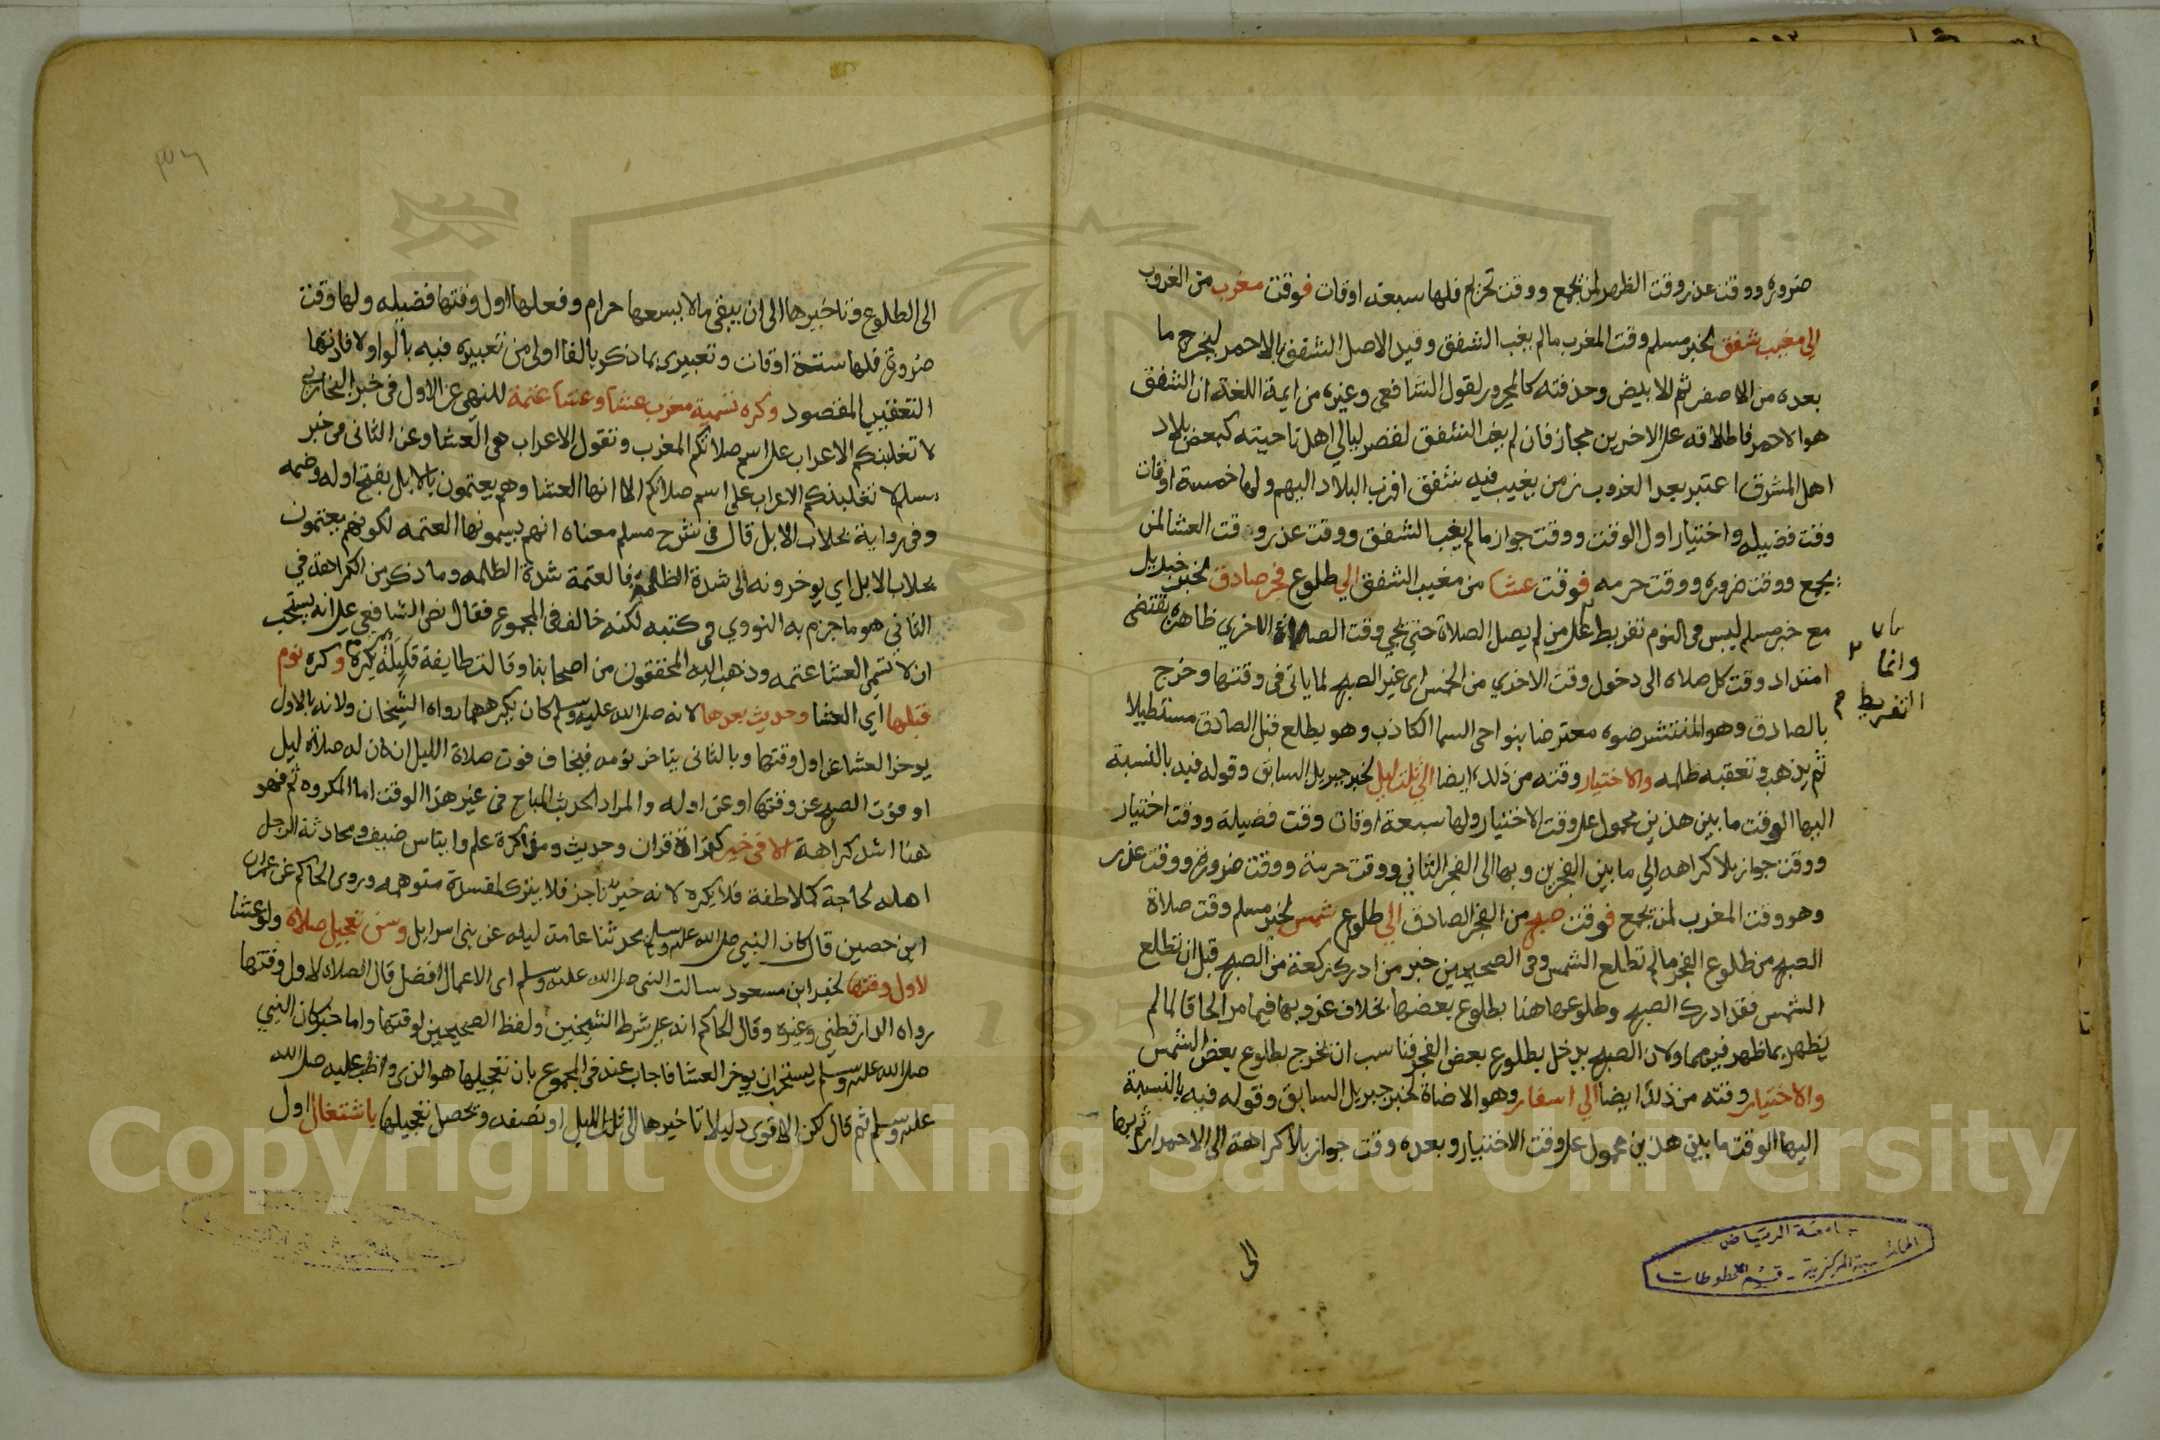 ضروره ووقت عذر وقت الظهر لمن يجمع ووقت تحريم فلها سبعة اوقات فوقت مغرب من الغروب
الى مغيب شفق لخبر مسلم وقت المغرب مالم يغب الشفق وقيد الاصل الشفق بالاحمر ليخرج ما
بعده من الاصفر ثم الابيض وحذفته كالمحرر لقول الشافعي وغيره من ايمة اللغة ان الشفق
هو الاحمر فاطلاقه على الاخرين مجاز فان لم يغب الشفق لقصر ليالي اهل ناحيته كبعض بلاد
اهل المشرق اعتبر بعد الغروب زمن يغيب فيه شفق اقرب البلاد اليهم ولها خمسة اوقات
وقت فضيله واختيار اول الوقت ووقت جواز مالم يغب الشفق ووقت عذر وقت العشا لمن
يجمع ووقت ضروره ووقت حرمه فوقت عشا من مغيب الشفق الي طلوع فجر صادق لخبر جبريل
مع خبر مسلم ليس في النوم تفريط على من لم يصل الصلاة حتى يجي وقت الصلاة الاخري ظاهره يقتضى
وانما
التفريط
امتداد وقت كل صلاه الى دخول وقت الاخري من الخمس اى غير الصبح لما ياتى في وقتها وخرج
بالصادق وهو المنتشر ضوه معترضا بنواحى السما الكاذب وهو يطلع قبل الصادق مستطيلا
ثم يذهب وتعقبه ظلمه والاختيار وقته من ذلك ايضا الي ثلث ليل لخبر جبريل السابق وقوله فيه بالنسبة
اليها الوقت ما بين هذين محمول على وقت الاختيار ولها سبعة اوقات وقت فضيلة ووقت اختيار
ووقت جواز بلا كراهه الي ما بين الفجرين وبها الى الفجر الثاني ووقت حرمة ووقت ضرورة ووقت عذر
وهو وقت المغرب لمن يجمع فوقت صبح من الفجر الصادق الي طلوع شمس لخبر مسلم وقت صلاة
الصبح من طلوع الفجر مالم تطلع الشمس وفى الصحيحين خبر من ادرك ركعة من الصبح قبل ان تطلع
الشمس فقد ادرك الصبح وطلوعها هنا بطلوع بعضها بخلاف غروبها فيما مر الحاقا لما لم
يظهر بما ظهر فيهما ولان الصبح يدخل بطلوع بعض الفجر فناسب ان يخرج بطلوع بعض الشمس
والاختيار وقته من ذلك ايضا الي اسفار وهو الاضاة لخبر جبريل السابق وقوله فيه بالنسبة
اليها الوقت ما بين هذين محمول على وقت الاختيار وبعده وقت جواز بلا كراهة الى الاحمرار ثم بها
الى
جامعة الرياض
المكتبة المركزية - قسم المخطوطات
الى الطلوع وتاخيرها الى ان يبقى مالا يسعها حرام وفعلها اول وقتها فضيله ولها وقت
ضرورة فلها ستة اوقات وتعبيرى بما ذكر بالفا اولى من تعبيره فيه بالواو لافادتها
التعقيب المقصود وكره تسمية مغرب عشا وعشا عتمة للنهى عن الاول في خبر البخاري
لا تغلبنكم الاعراب على اسم صلاتكم المغرب وتقول الاعراب هى العشا وعن الثانى في خبر
مسلم لا تغلبنكم الاعراب على اسم صلاتكم الا انها العشا وهم يعتمون بالابل بفتح اوله وضمه
وفى رواية بحلاب الابل قال في شرح مسلم معناه انهم يسمونها العتمه لكونهم يعتمون
بحلاب الابل اي يوخرونه الى شدة الظلمة فالعتمة شدة الظلمه وما ذكر من الكراهة في
الثاني هو ما جزم به النووي في كتبه لكنه خالف في المجموع فقال نص الشافعي على انه يستحب
ان لا تسمى العشا عتمه وذهب اليه المحققون من اصحابنا وقالت طايفة قليلة يكره وكره نوم
قبلها اي العشا وحديث بعدها لانه صلى الله عليه وسلم كان يكرههما رواه الشيخان ولانه بالاول
يوخر العشا عن اول وقتها وبالثانى يتاخر نومه فيخاف فوت صلاة الليل ان كان له صلاة ليل
او فوت الصبح عن وقتها او عن اوله والمراد الحديث المباح في غير هذا الوقت اما المكروه ثم فهو
هنا اشد كراهة الا في خير كقراة قران وحديث ومذاكرة علم وايناس ضيف ومحادثة الرجل
اهله لحاجة كملاطفة فلا يكره لانه خير ناجز فلا يترك لمفسدة متوهمه وروى الحاكم عن عمران
ابن حصين قال كان النبي صلى الله عليه وسلم يحدثنا عامة ليله عن بنى اسرايل وسن تعجيل صلاة ولو عشا
لاول وقتها لخبر ابن مسعود سالت النبى صلى الله عليه وسلم اى الاعمال افضل قال الصلاة لاول وقتها
رواه الدارقطني وغيره وقال الحاكم انه على شرط الشيخين ولفظ الصحيحين لوقتها واما خبر كان النبي
صلى الله عليه وسلم يستحب ان يوخر العشا فاجاب عنه في المجموع بان تعجيلها هو الذى واظب عليه صلى الله
عليه وسلم ثم قال لكن الاقوى دليلا تاخيرها الى ثلث الليل او نصفه ويحصل تعجيلها باشتغال اول
Copyright © King Saud University